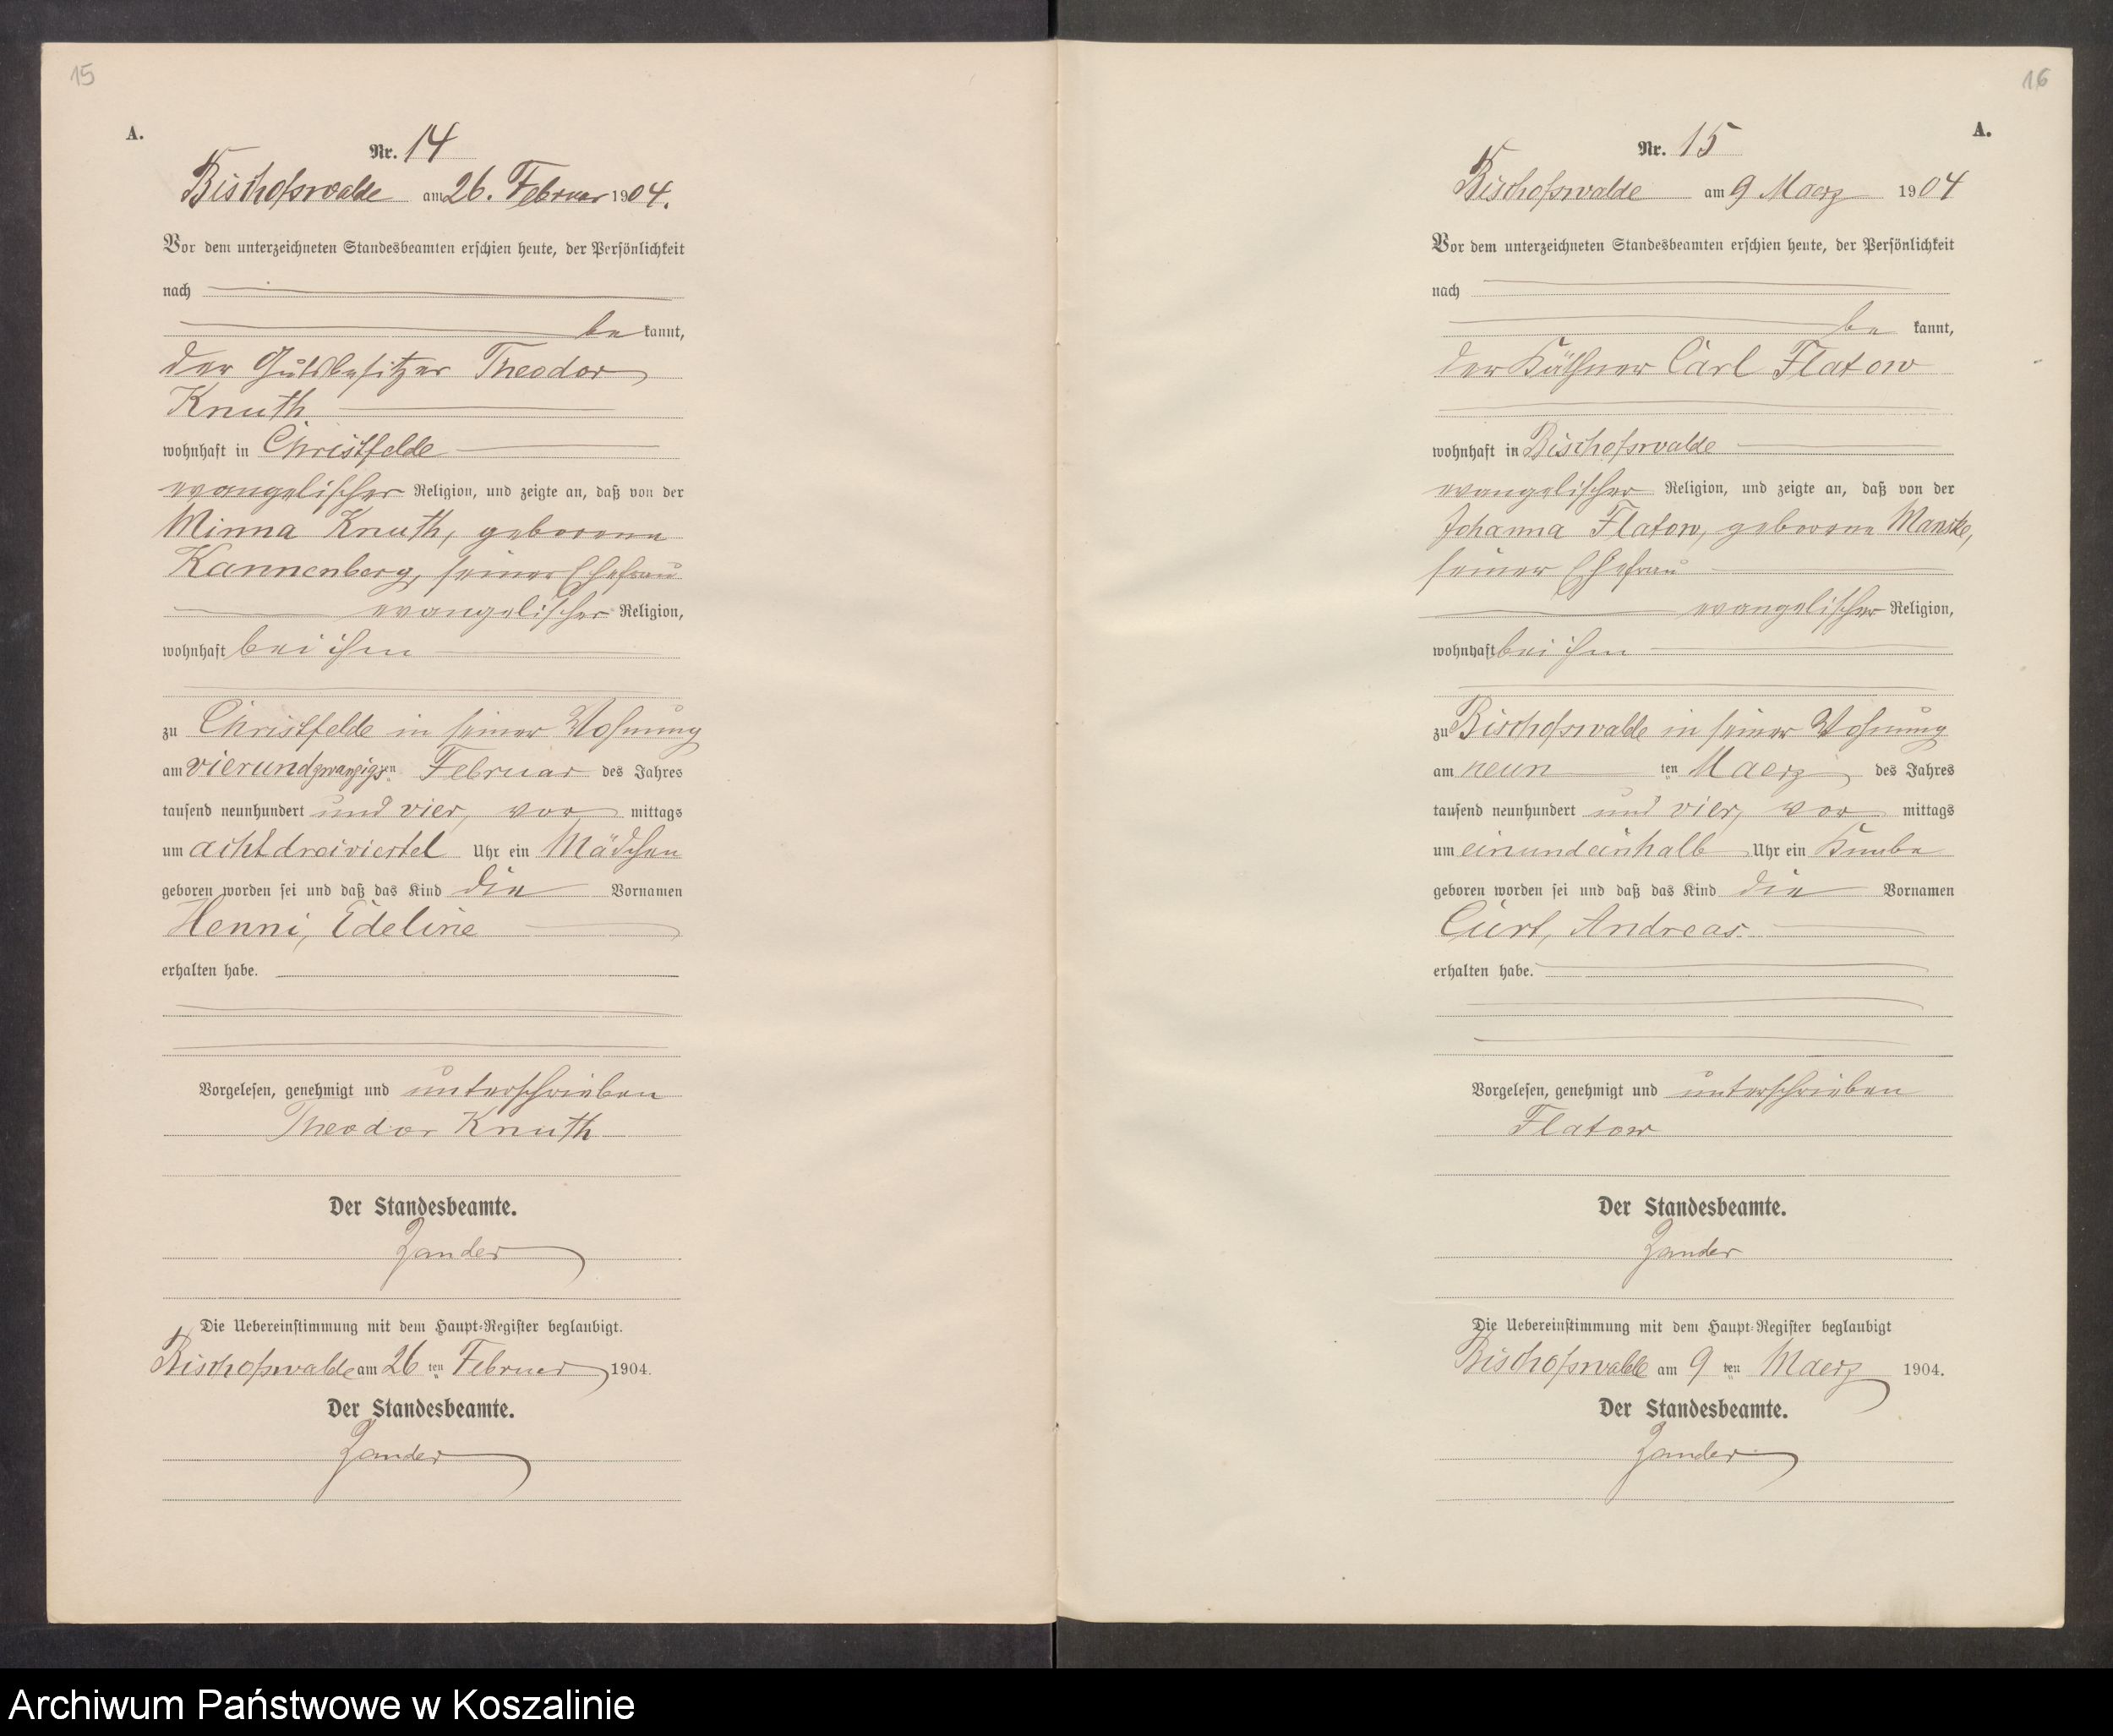 15
A.
Nr. 14
Bischofswalde am 26. Februar 1904.
Vor dem unterzeichneten Standesbeamten erschien heute, der Persönlichkeit
nach
be kannt,
der Gutsbesitzer Theodor
Knuth
wohnhaft in Christfelde
evangelischer Religion, und zeigte an, daß von der
Minna Knuth, geborene
Kannenberg, seiner Ehefrau
evangelischer Religion,
wohnhaft bei ihm
zu Christfelde in seiner Wohnung
am vierundzwanzigsten Februar des Jahres
tausend neunhundert und vier, vor mittags
um acht dreiviertel Uhr ein Mädchen
geboren worden sei und daß das Kind die Vornamen
Henni, Edeline
erhalten habe.
Vorgelesen, genehmigt und unterschrieben
Theodor Knuth
Der Standesbeamte.
Zander
Die Uebereinstimmung mit dem Haupt-Register beglaubigt.
Bischofswalde am 26 ten Februar 1904.
Der Standesbeamte.
Zander
16
A.
Nr. 15
Bischofswalde am 9 Maerz 1904
Vor dem unterzeichneten Standesbeamten erschien heute, der Persönlichkeit
nach
be kannt,
der Käthner Carl Flatow
wohnhaft in Bischofswalde
evangelischer Religion, und zeigte an, daß von der
Johanna Flatow, geborene Manske,
seiner Ehefrau
evangelischer Religion,
wohnhaft bei ihm
zu Bischofswalde in seiner Wohnung
am neun ten Maerz des Jahres
tausend neunhundert und vier, vor mittags
um einundeinhalb Uhr ein Knabe
geboren worden sei und daß das Kind die Vornamen
Curt, Andreas
erhalten habe.
Vorgelesen, genehmigt und unterschrieben
Flatow
Der Standesbeamte.
Zander
Die Uebereinstimmung mit dem Haupt-Register beglaubigt
Bischofswalde am 9 ten Maerz 1904.
Der Standesbeamte.
Zander
Archiwum Państwowe w Koszalinie